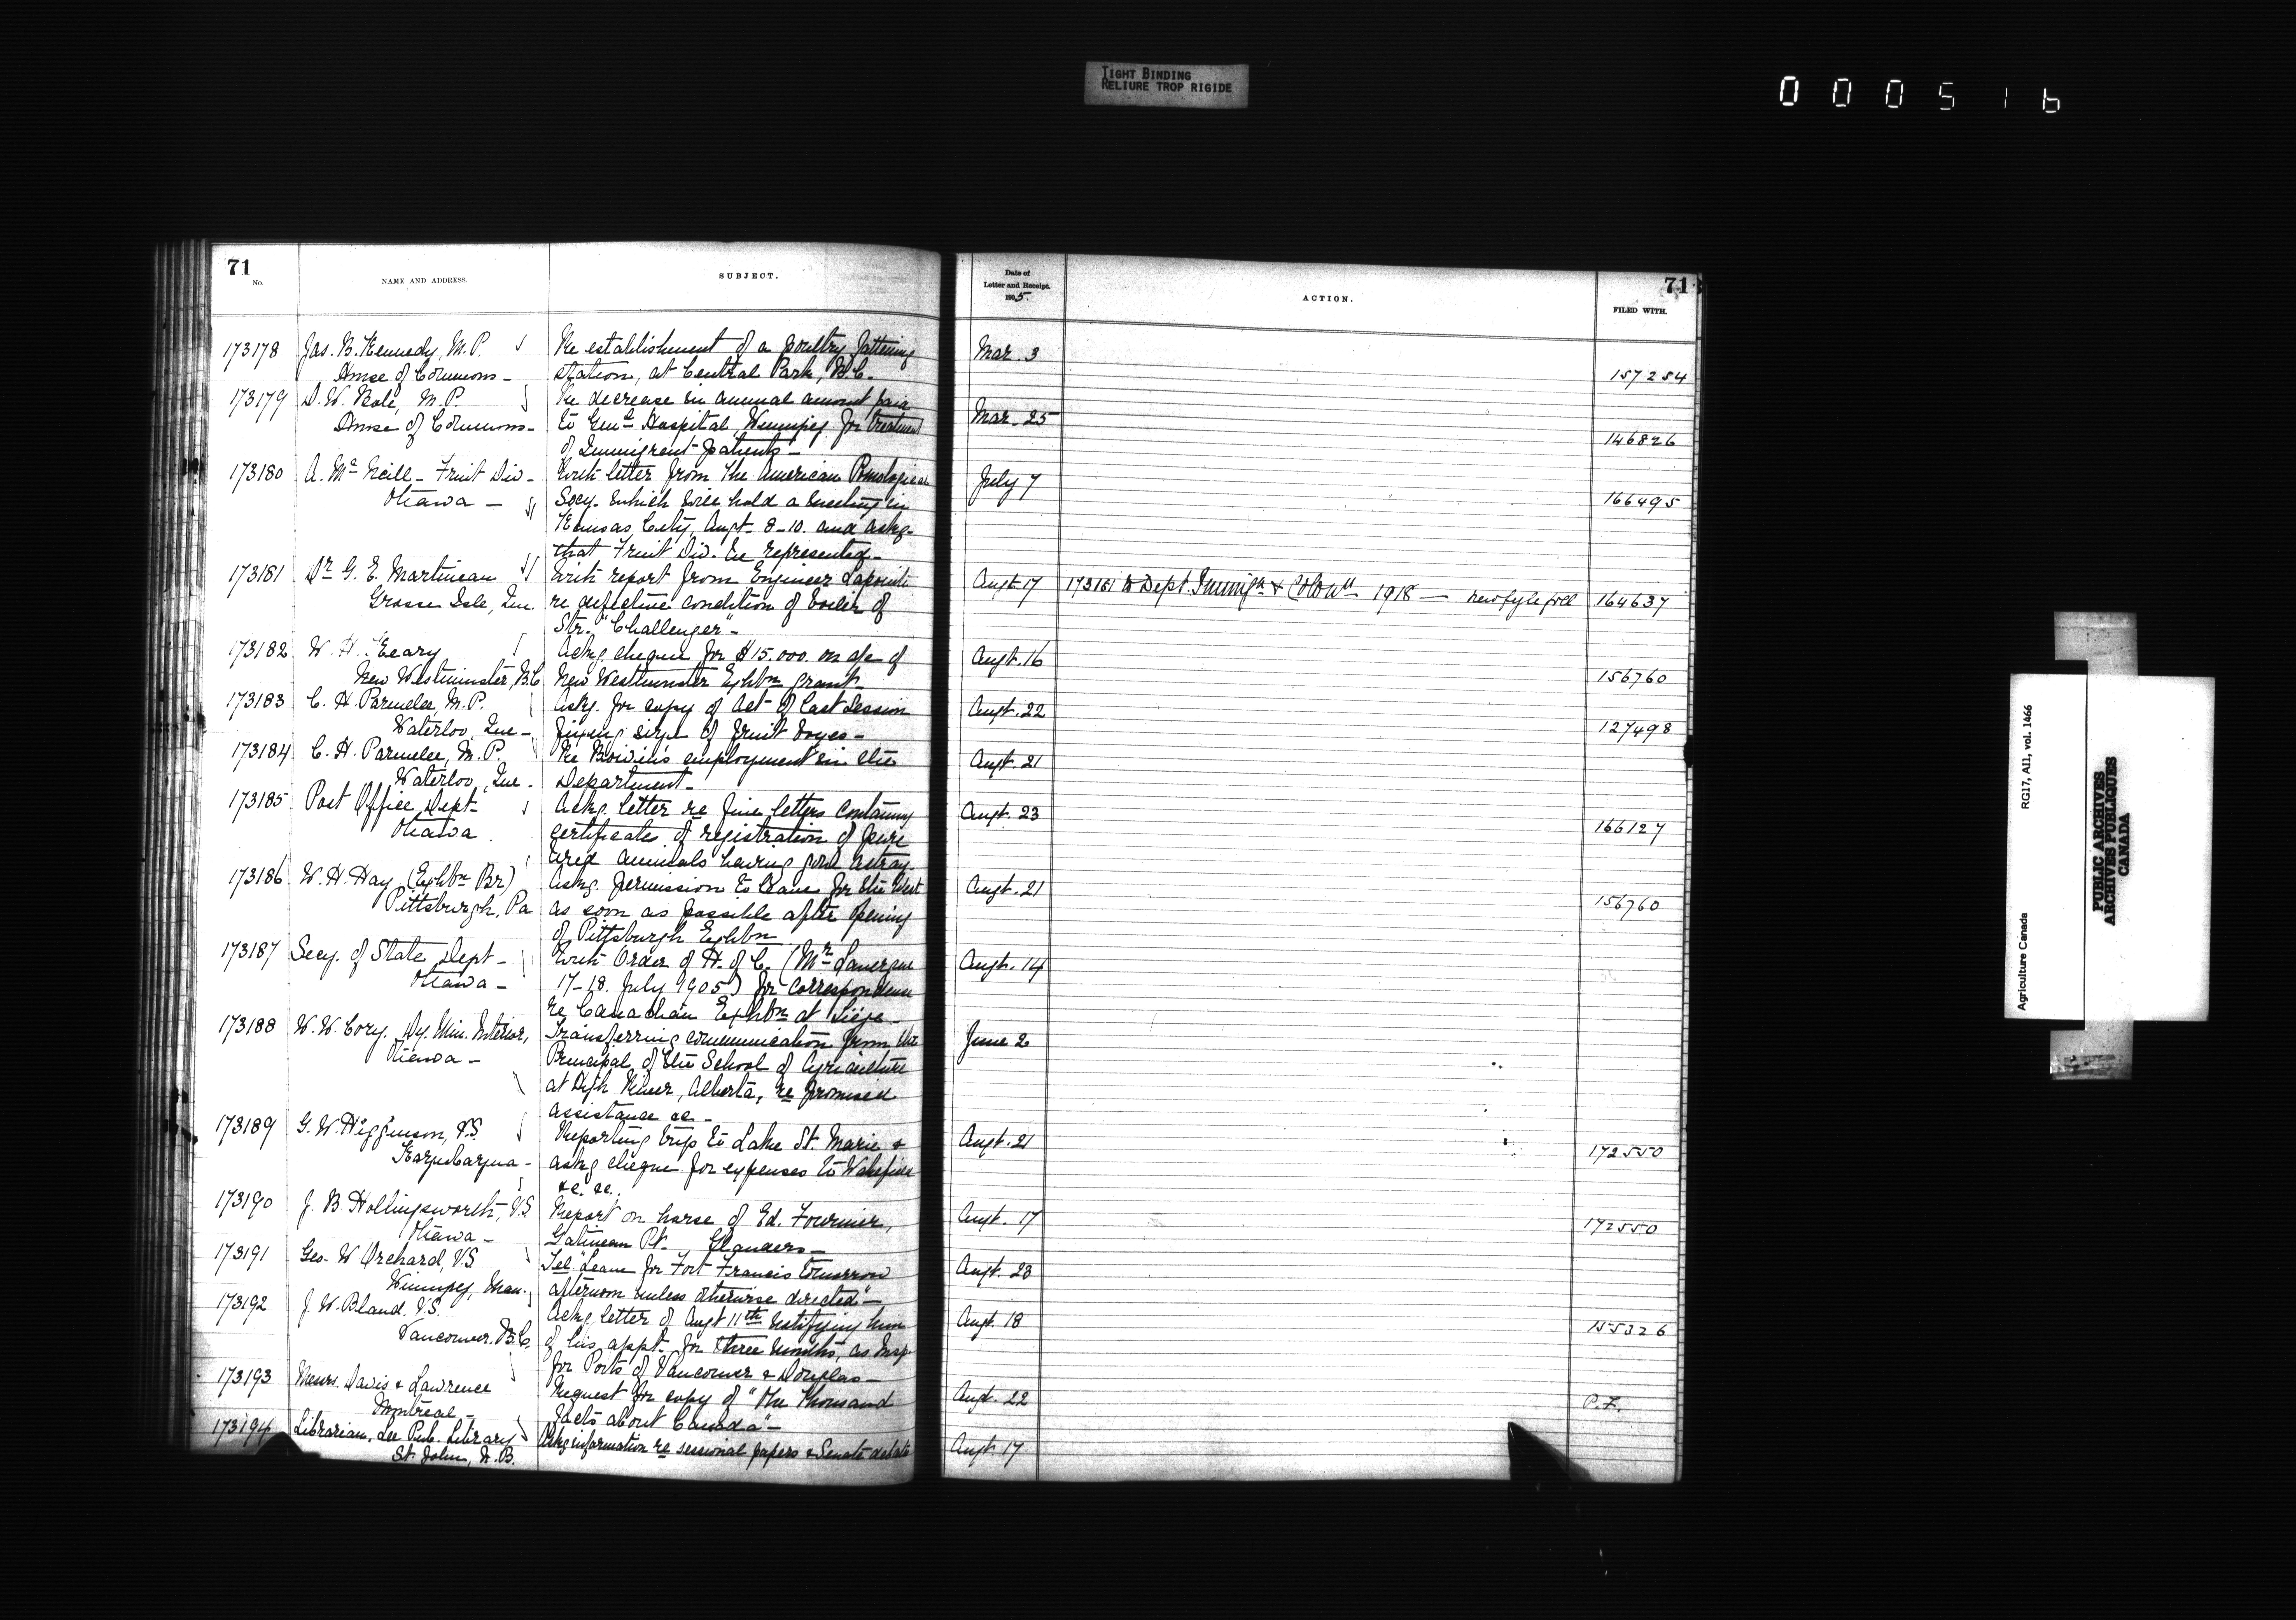 TIGHT BINDING
RELIURE TROP RIGIDE
000516
71
No.
NAME AND ADDRESS.
SUBJECT.
Date of
Letter and Receipt.
1905.
ACTION.
71
FILED WITH.
173178 Jas. B. Kennedy, M.P. Re establishment of a poultry fattening Mar. 3
House of Commons - station, at Central Park, B.C. 157254
173179 D. W. Bole, M.P. Re decrease in annual amount paid
House of Commons - to Genl Hospital, Winnipeg for treatment Mar. 25
of Immigrant patients - 146826
173180 A. McNeill - Fruit Div - With letter from the American Pomological July 7
Ottawa - Socy. which will hold a meeting in 166495
Kansas City, Augt. 8-10. and askg.
that Fruit Div. be represented -
173181 Dr G. E. Martineau With report from Engineer Lapointe Augt. 17 173181 to Dept. Immign & Colon 1918 -
Grosse Isle, Que. re defective condition of boiler of 164637
Str. "Challenger" -
173182 W. H. Keary Askg. cheque for $15.000. on a/c of Augt. 16
New Westminster, B.C New Westminster Exhbn grant - 156760
173183 C. H. Parmelee, M.P. Askg. for copy of Act of last Session Augt. 22
Waterloo, Que - fixing size of fruit boxes - 127498
173184 C. H. Parmelee, M.P. Re Boivin's employment in the Augt. 21
Waterloo, Que - Department -
173185 Post Office Dept - Ackg. letter re five letters containing Augt. 23
Ottawa. certificates of registration of pure 166127
bred animals having gone astray -
173186 W. H. Hay (Exhbn Br) Askg. permission to leave for the West Augt. 21
Pittsburgh, Pa as soon as possible after opening 156760
of Pittsburgh Exhbn
173187 Secy. of State Dept - With Order of H. of C. (Mr Lavergne Augt. 14
Ottawa - 17-18. July 1905) for correspondence
re Canadian Exhbn at Liége -
173188 W. W. Cory. Dy. Min. Interior, Transferring communication from the June 2
Ottawa - Principal, of the School of Agriculture
at High River, Alberta, re promised
assistance &c -
173189 G. W. Higginson, V.S. Reporting trip to Lake St. Marie & Augt. 21
Kazubazua - askg cheque for expenses to Wakefield 172550
&c. &c.
173190 J. B. Hollingsworth, V.S. Report on horse of Ed. Fournier, Augt. 17
Ottawa - Gatineau Pt. Glanders - 172550
173191 Geo. W Orchard, V.S. Tel. "Leave for Fort Francis tomorrow Augt. 23
Winnipeg, Man. afternoon unless otherwise directed" -
173192 J. W. Bland. V.S. Ackg. letter of Augt 11th notifying him Augt. 18
Vancouver, B.C. of his appt. for three months, as Insp. 155326
for Ports of Vancouver & Douglas -
173193 Messrs. Davis & Lawrence Request for copy of "One Thousand Augt. 22
Montreal - Facts about Canada" - P.F.
173194 Librarian, Lee Pub. Library Askg information re sessional papers & Senate debates Augt. 17
St. John, N.B.
Agriculture Canada
RG17, AII, vol. 1466
PUBLIC ARCHIVES
ARCHIVES PUBLIQUES
CANADA